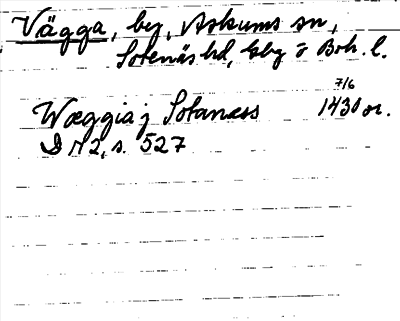 Vägga, by, Askums sn,
Sotenäs hd, Gbg o Boh. l.
7/6
Wæggia j Sotanæss 1430 or.
DN 2, s. 527